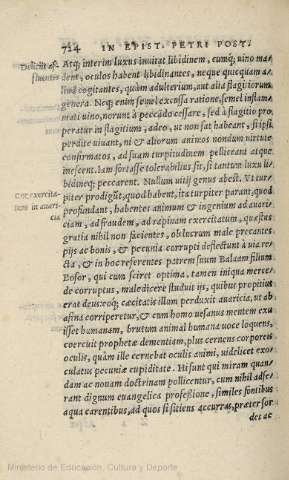 724 IN EPIST. PETRI POST.
Deliciis af-
fluentes
Atq; interim luxus inuitat libidinem, cumq; uino ma
dent, oculos habent libidinantes, neque quicquam a-
liud cogitantes, quàm adulterium, aut alia flagitiorum
genera. Neq; enim semel excussa ratione, semel inflam
mati uino, norunt à peccãdo cessare, sed à flagitio pro
perãtur in flagitium, adeo, ut non sat habeant, si ipsi
perdite uiuant, ni &amp; aliorum animos nondum uirtute
confirmatos, ad suam turpitudinem pelliceant atque
inescent. Iam fortasse tolerabilius sit, si tantum luxu li-
bidineq; peccarent. Nullum uitij genus abest. Vt tur-
Cor exercita-
tum in auari-
cia
piter prodigũt, quod habent, ita turpiter parant, quod
profundant, habentes animum &amp; ingenium ad auari-
ciam, ad fraudem, ad rapinam exercitatum, quæstus
gratia nihil non facientes, oblucrum male precantes
pijs ac bonis, &amp; pecunia corrupti deflectunt à uia re-
cta, &amp; in hoc referentes patrem suum Balaam filium
Bosor, qui cum sciret optima, tamen iniqua merce-
de corruptus, maledicere studuit ijs, quibus propitius
erat deus: eoq; cæcitatis illum perduxit auaricia, ut ab
asina corriperetur, &amp; cum homo uesanus mentem exu
isset humanam, brutum animal humana uoce loquens,
coercuit prophetæ dementiam, plus cernens corporeis
oculis, quàm ille cernebat oculis animi, uidelicet exo-
culatus pecuniæ cupiditate. Hi sunt qui miram quan-
dam ac nouam doctrinam pollicentur, cum nihil adfe-
rant dignum euangelica professione, similes fontibus
aqua carentibus, ad quos si sitiens accurras, præter sor
des ac
Ministerio de Educación, Cultura y Deporte